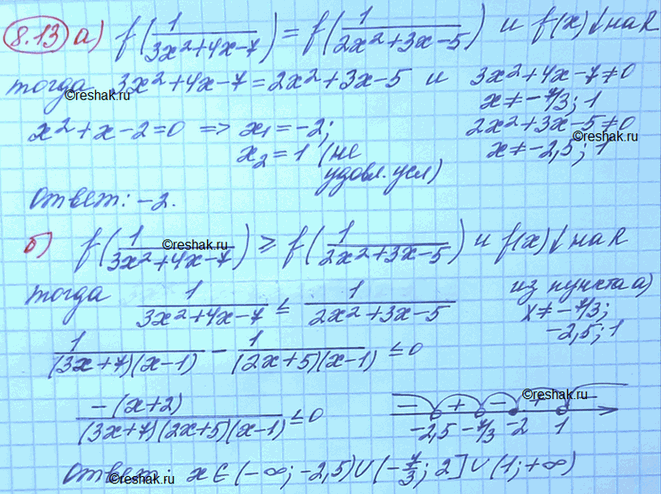 8.13 а) f(1/(3x²+4x-7)) = f(1/(2x²+3x-5)) и f(x)↓на R
тогда 3x²+4x-7=2x²+3x-5 и 3x²+4x-7≠0
©reshak.ru
x≠-7/3; 1
x²+x-2=0 => x₁=-2; 2x²+3x-5≠0
©reshak.ru
x₂=1 (не удовл. усл) x≠-2,5; 1
Ответ: -2.
б) f(1/(3x²+4x-7)) ≥ f(1/(2x²+3x-5)) и f(x)↓на R
©reshak.ru
тогда 1/(3x²+4x-7) ≤ 1/(2x²+3x-5) из пункта а)
x≠-7/3;
-2,5; 1
1/((3x+7)(x-1)) - 1/((2x+5)(x-1)) ≤0
-(x+2)/((3x+7)(2x+5)(x-1)) ≤0
©reshak.ru
- + - + -
-2,5 -7/3 -2 1
Ответ: x∈(-∞; -2,5)∪(-7/3; 2]∪(1; +∞)